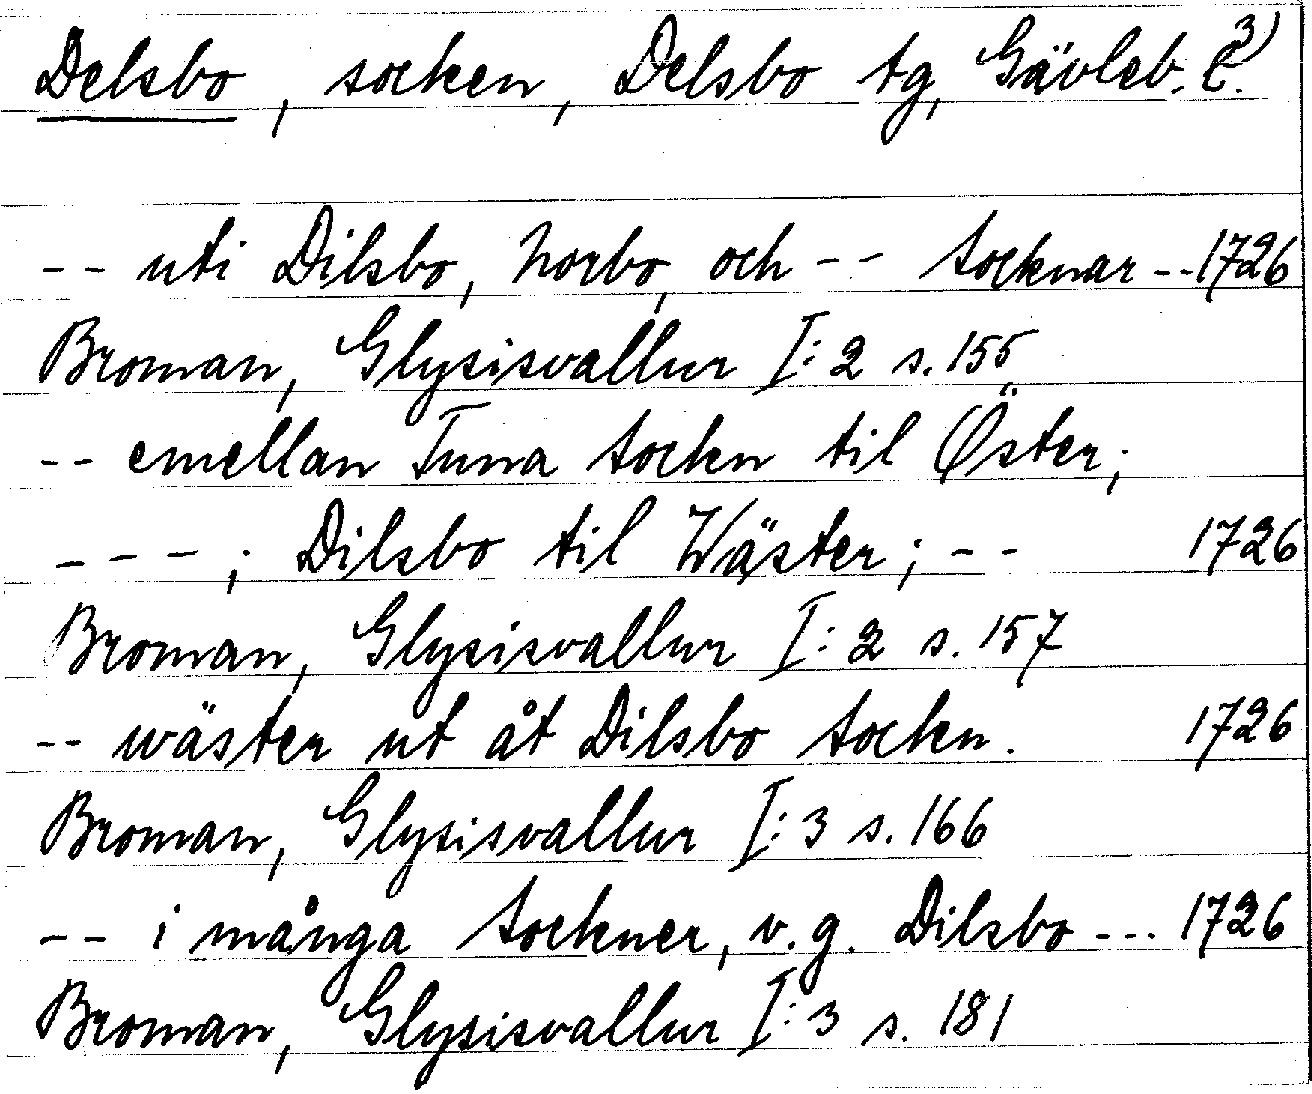 Delsbo, socken, Delsbo tg, Gävleb. l. 3)
-- uti Dilsbo, Norbo, och -- Socknar -- 1726
Broman, Glysisvallur I:2 s. 155
-- emellan Tuna Sockn til Öster;
---; Dilsbo til Wäster; -- 1726
Broman, Glysisvallur I:2 s. 157
-- wäster ut åt Dilsbo Sockn. 1726
Broman, Glysisvallur I:3 s. 166
-- i många Sockner, v.g. Dilsbo --- 1726
Broman, Glysisvallur I:3 s. 181